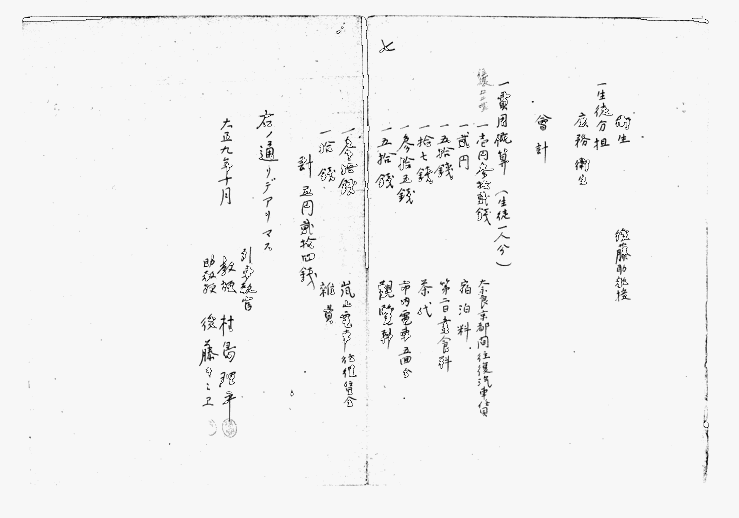 七
衛生
後藤助教授
一生徒分担
庶務 衛生
會計
一費用概算(生徒一人分)
一壱円参拾弐銭 奈良京都間往復汽車賃
一弐円 宿泊料
一五拾銭 第二日昼食料
一拾七銭 茶代
一参拾五銭 市内電車五回分
一五拾銭 観覧料
一参拾銭 嵐山電車
一拾銭 雑費
計五円弐拾四銭
右ノ通リデアリマス
大正九年十月
引率教官
教授 村島理平
助教授 後藤